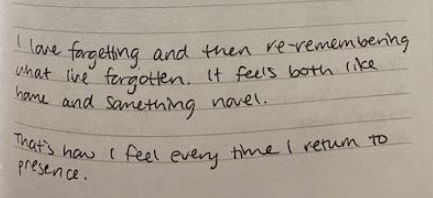 I love forgetting and then re-remembering
what I've forgotten. It feels both like
home and something novel.
That's how I feel every time I return to
presence.